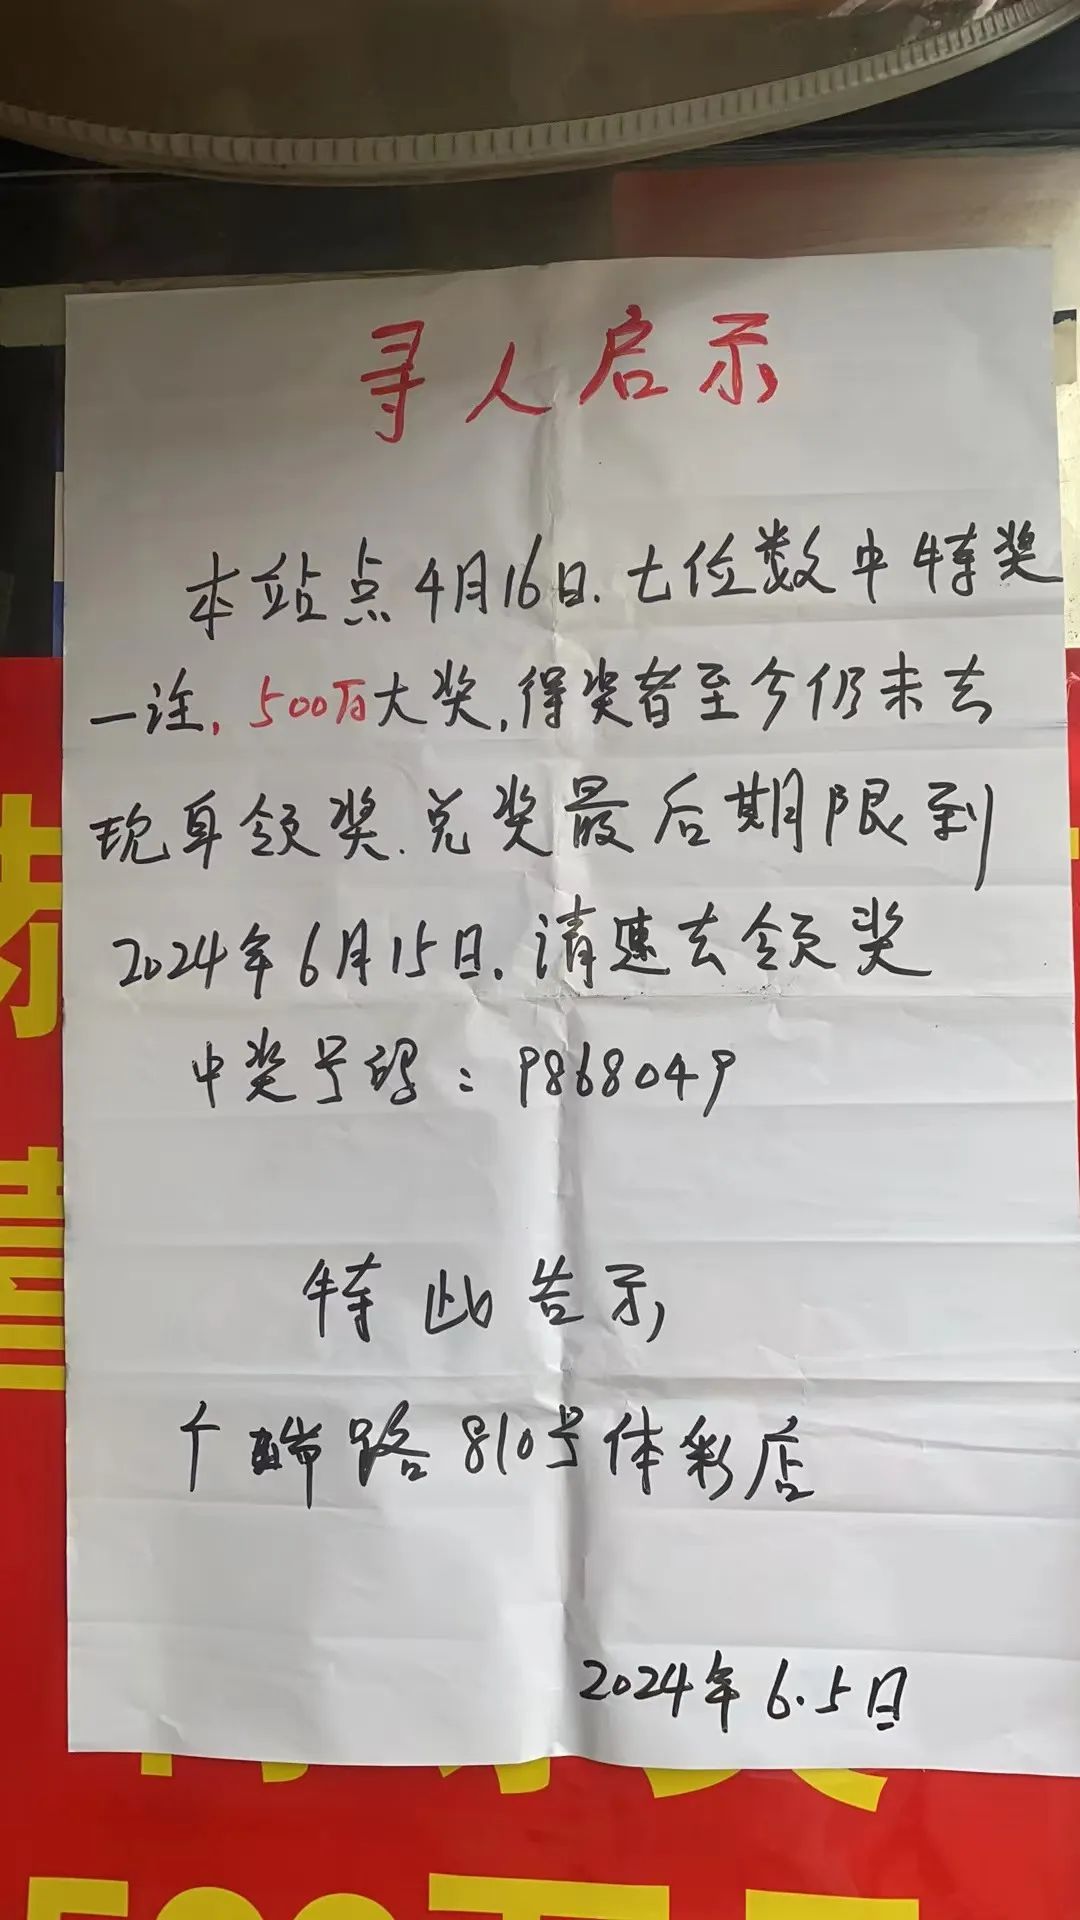 寻人启示
本站点4月16日.七位数中特奖
一注,500万大奖,得奖者至今仍未去
现身领奖.兑奖最后期限到
2024年6月15日.请速去领奖
中奖号码：9868049
特此告示
路810号体彩店
2024年6.5日